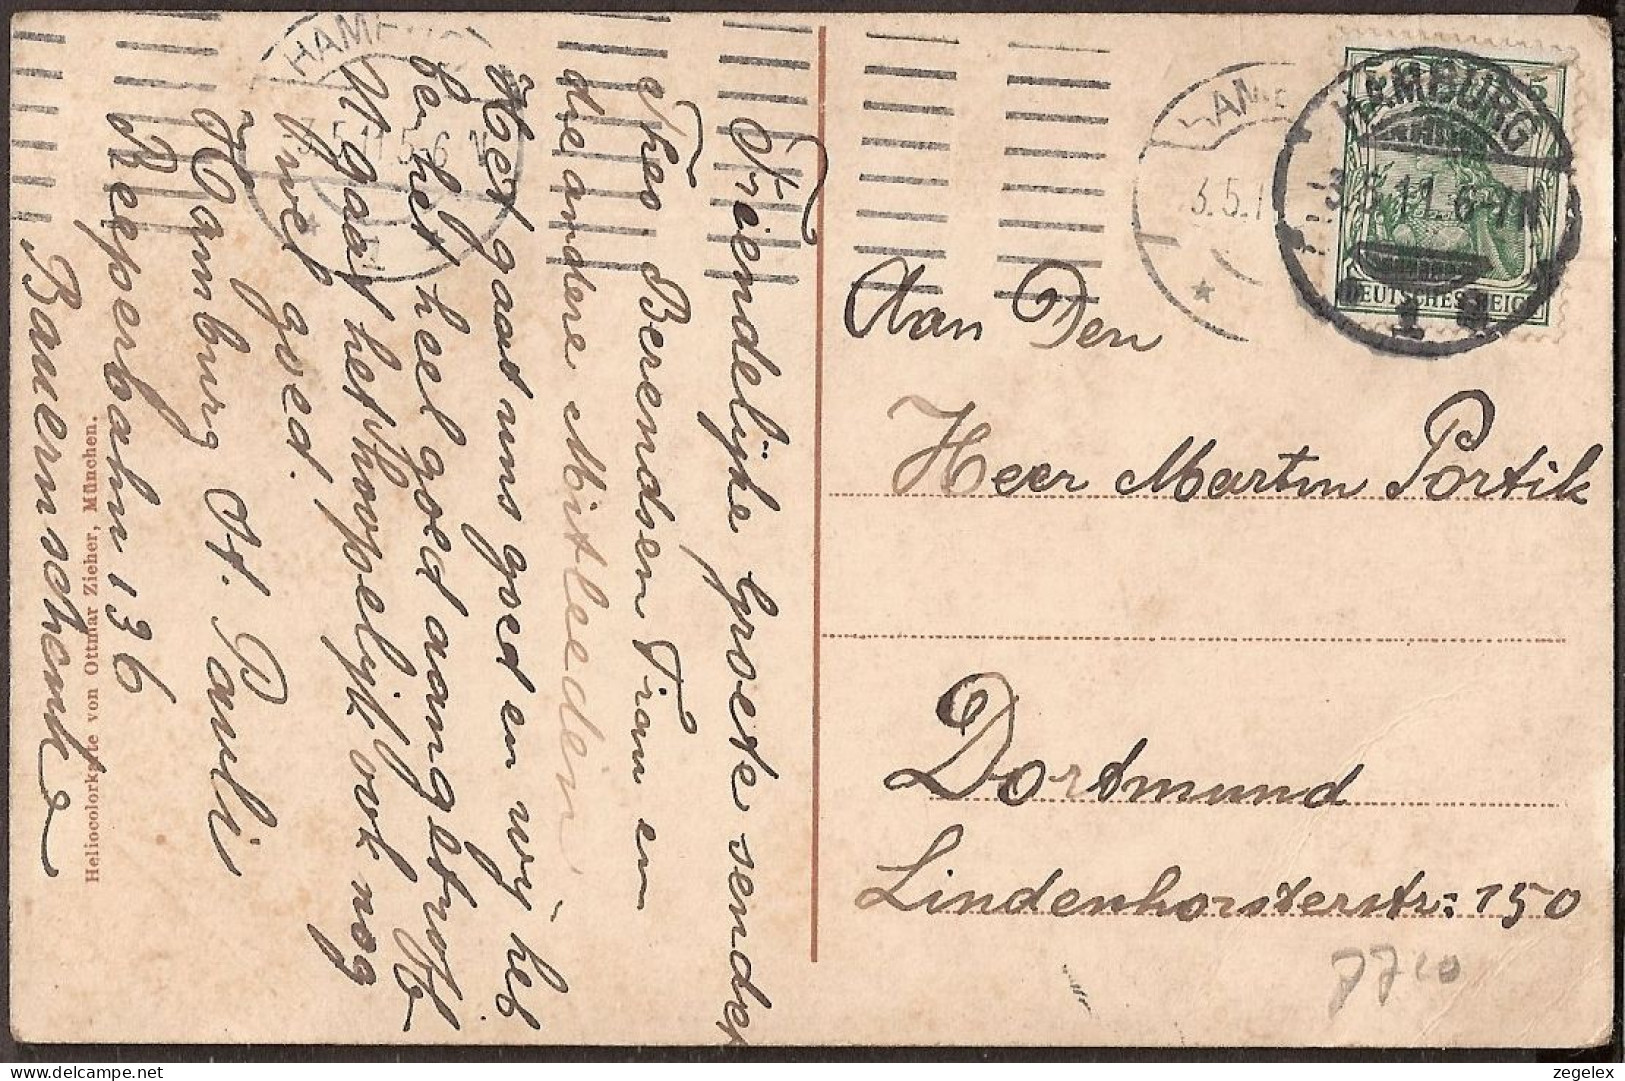 Vriendelijke Groete sendet
Theo Berendsen Frau en
die andere Mitleeden.
Hier gaat uns goed en wij heb
ben het heel goed aangetroffe
N gaat het hoopelijk ook nog
wel goed.
Hamburg St. Pauli
Reeperbahn 136
Bauernschenke
Heliocolorkarte von Ottmar Zieher, München.
HAMBURG
3.5.11 5-6 N
HAMB
3.5.1
HAMBURG
3.5.11 6-7N
1
DEUTSCHES REICH
Aan Den
Heer Martin Portik
Dortmund
Lindenhorsterstr: 150
zegelex